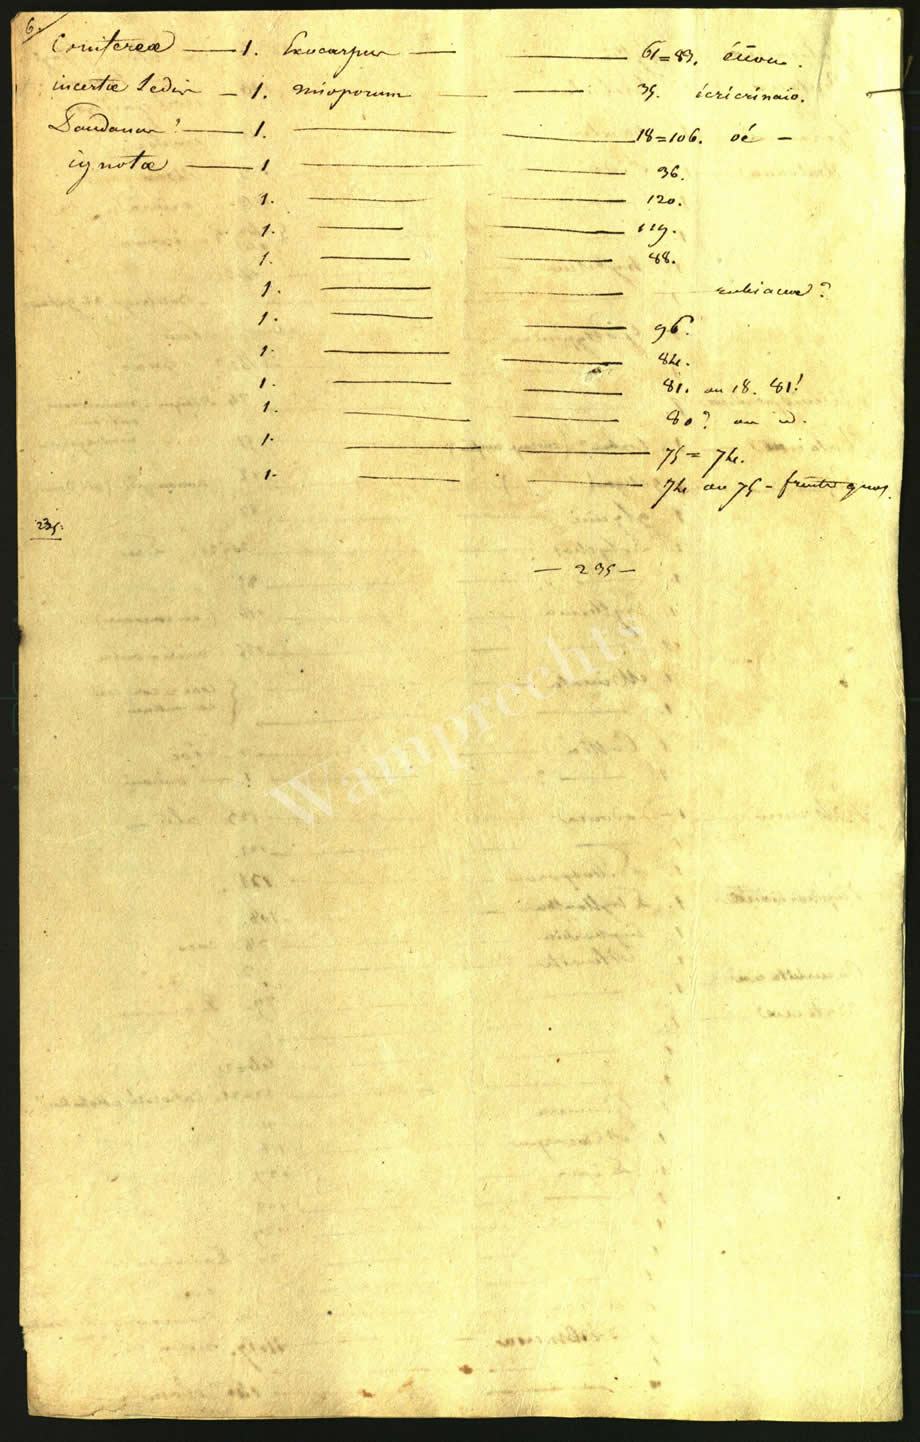 6.
Coniferæ — 1. Exocarpus — — 61=83. éïvou.
incertæ Sedis — 1. mioporum — — 35. ièriérinaio.
Pandanus? — 1. — — 18=106. oé —
ignotæ — 1 — — 36.
1. — — 120.
1. — — 119.
1. — — 88.
1. — — rubiaceæ?
1. — — 96.
1. — — 84.
1. — — 81. ou 18. 81!
1. — — 80? ou id.
1. — — 75 = 74.
1. — — 74 ou 75 —
235.
— 235 —
Wamprechts